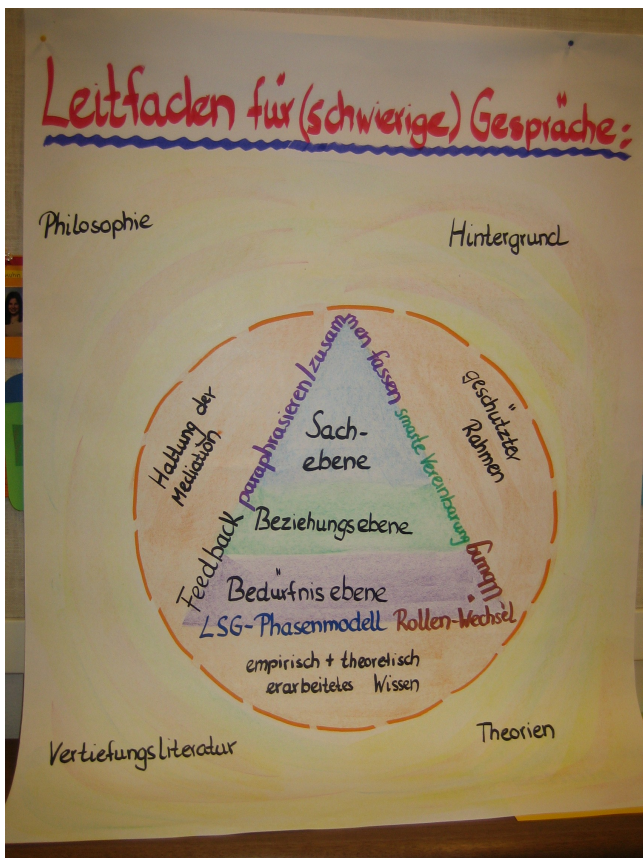 Leitfaden für (schwierige) Gespräche:
Philosophie
Hintergrund
Haltung der
Mediation
paraphrasieren/zusammen fassen
geschützter
Rahmen
smarte Vereinbarung
Sach-
ebene
Feedback
Beziehungsebene
Übung
Bedürfnisebene
LSG-Phasenmodell Rollen-Wechsel
empirisch + theoretisch
erarbeitetes Wissen
Vertiefungsliteratur
Theorien